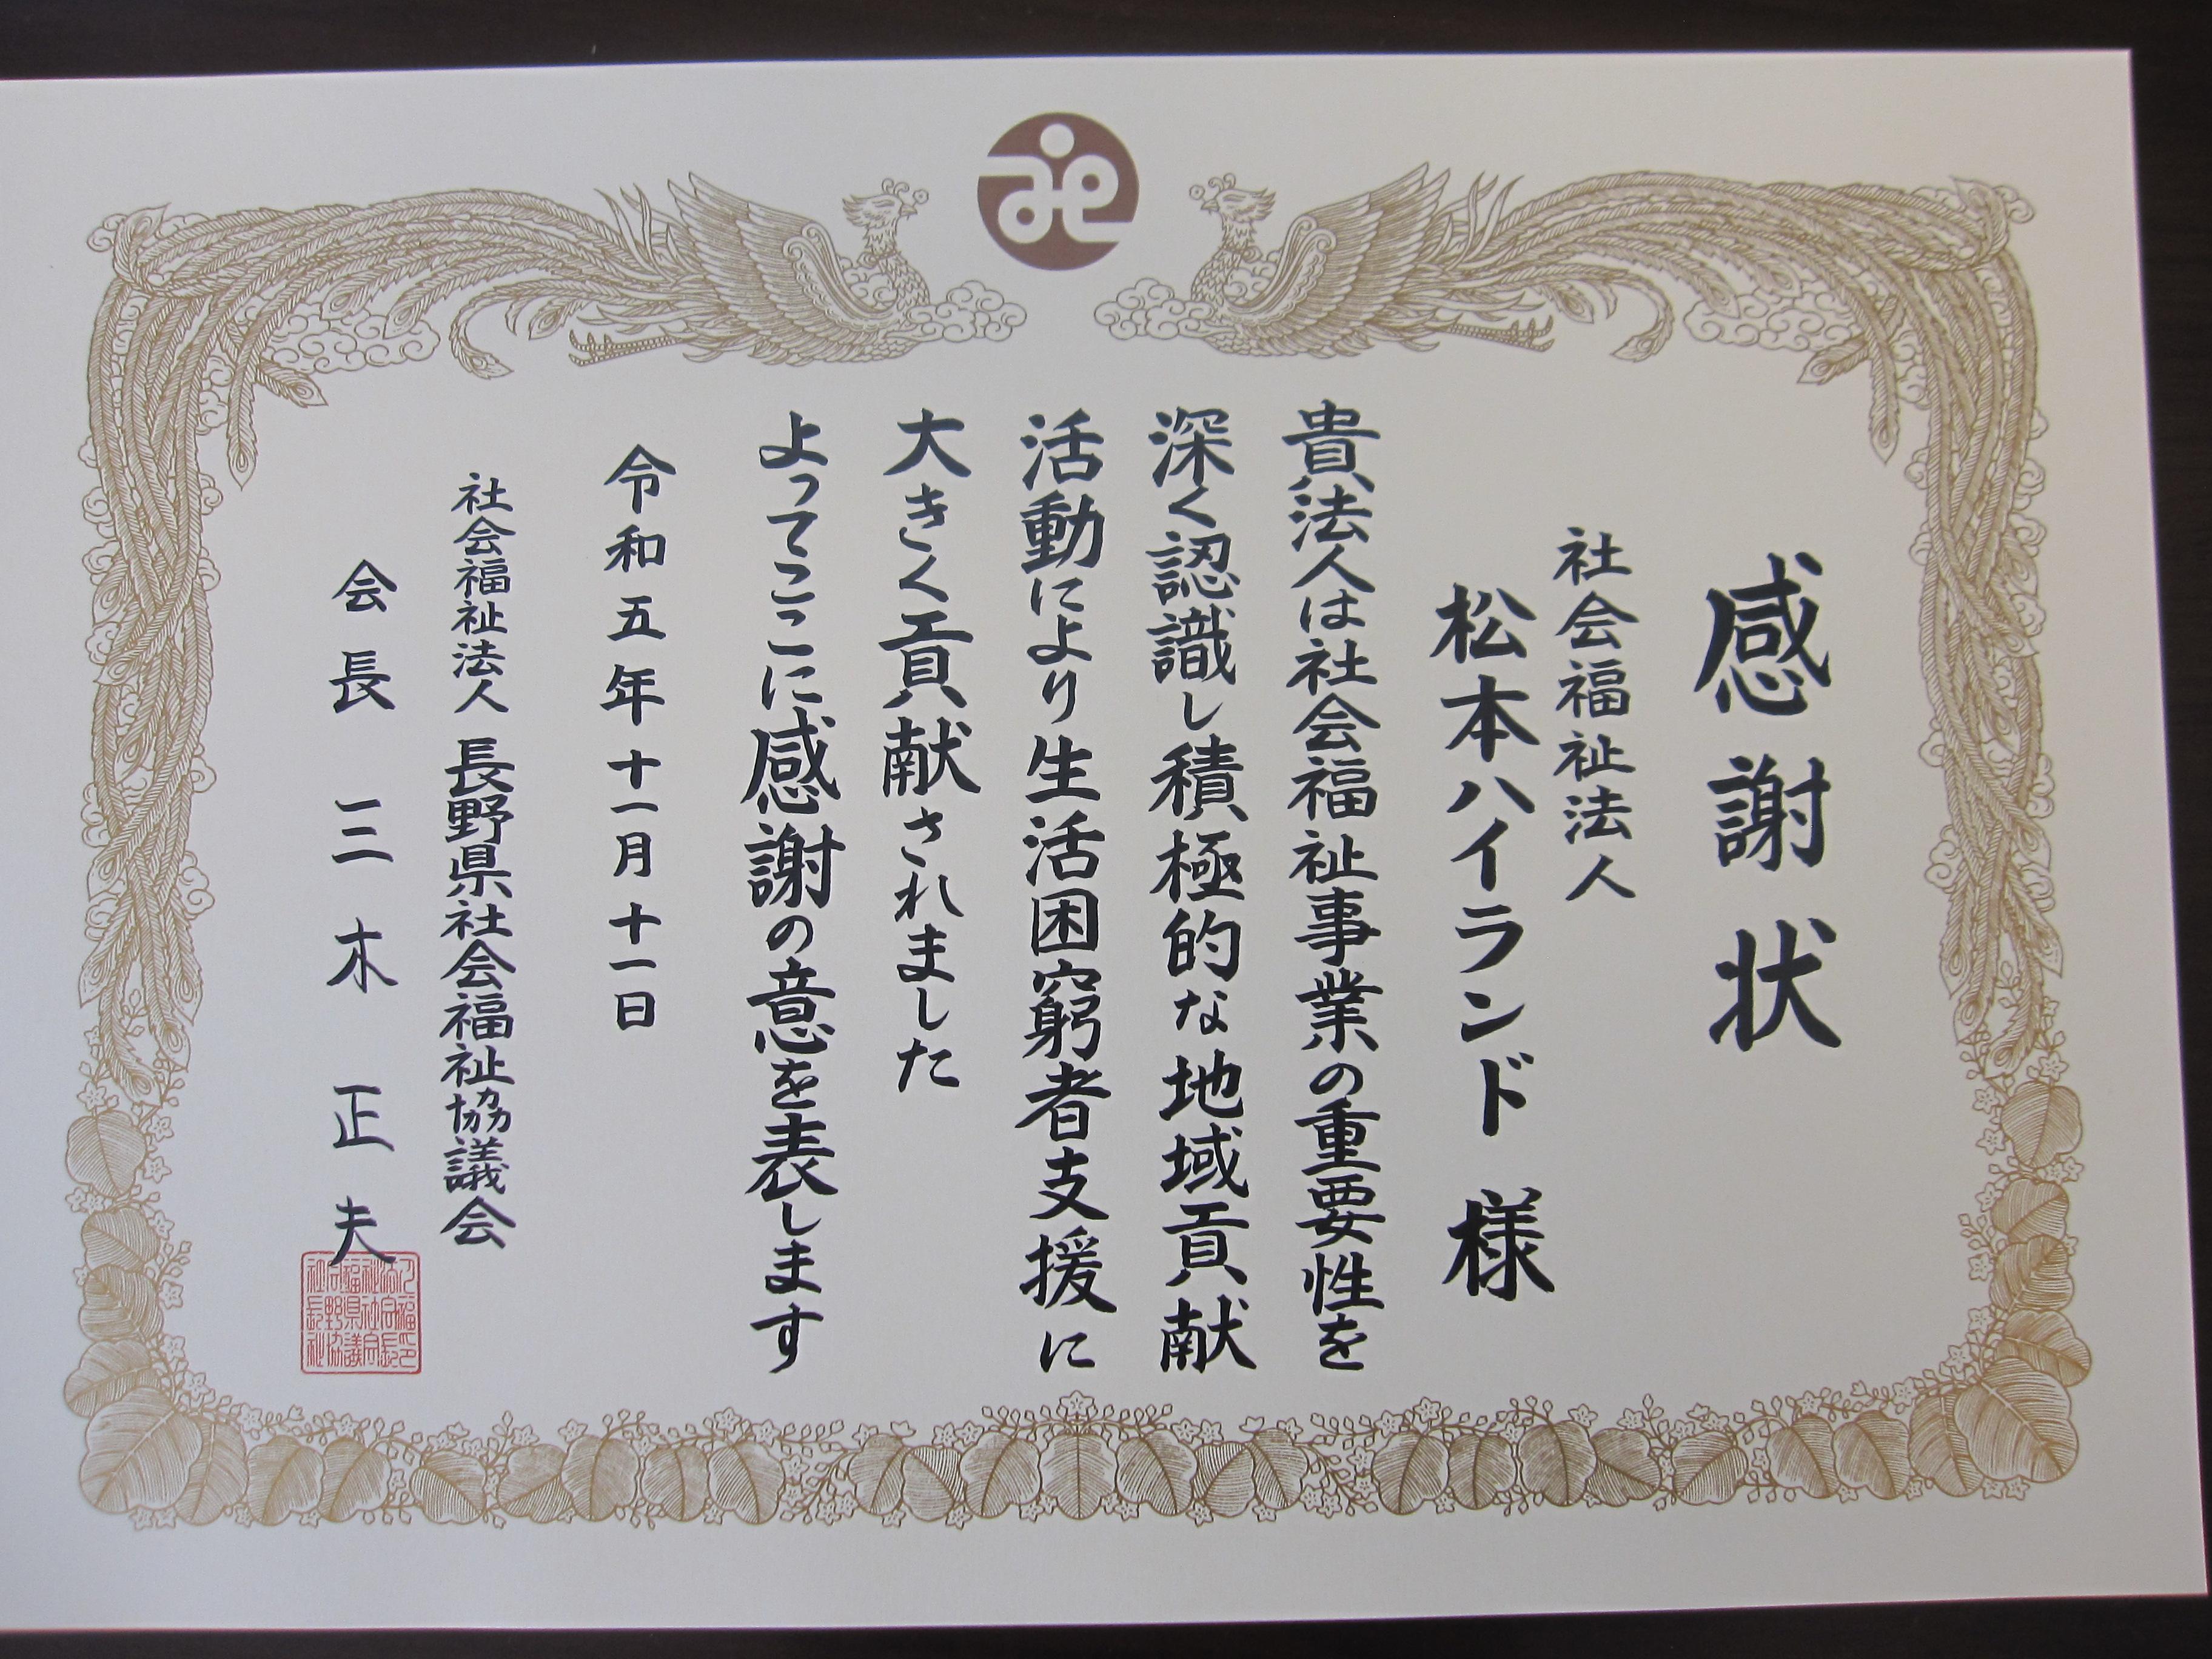 感謝状
社会福祉法人
松本ハイランド 様
貴法人は社会福祉事業の重要性を
深く認識し積極的な地域貢献
活動により生活困窮者支援に
大きく貢献されました
よってここに感謝の意を表します
令和五年十一月十一日
社会福祉法人 長野県社会福祉協議会
会長 三木正夫